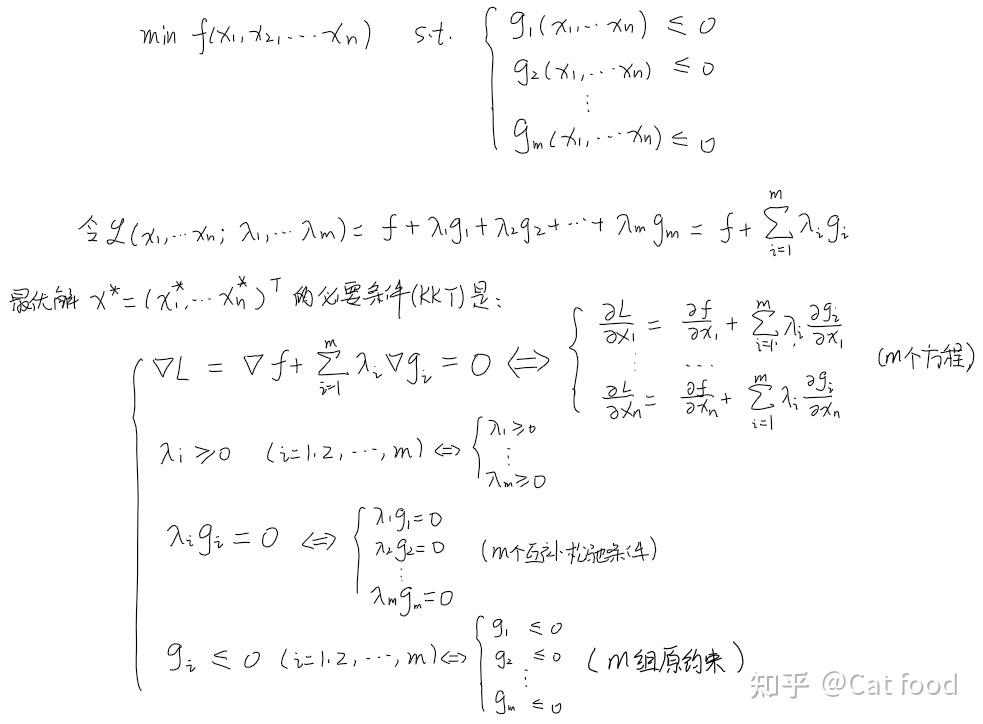 min f(x₁, x₂, ⋯ xₙ) s.t. { g₁(x₁, ⋯ xₙ) ≤ 0
g₂(x₁, ⋯ xₙ) ≤ 0
⋮
gₘ(x₁, ⋯ xₙ) ≤ 0
令 ℒ(x₁, ⋯ xₙ; λ₁, ⋯ λₘ) = f + λ₁g₁ + λ₂g₂ + ⋯ + λₘgₘ = f + ∑ᵢ₌₁ᵐ λᵢgᵢ
最优解 x* = (x₁*, ⋯ xₙ*)ᵀ 的必要条件(KKT)是:
∇L = ∇f + ∑ᵢ₌₁ᵐ λᵢ∇gᵢ = 0 ⟺ { ∂L/∂x₁ = ∂f/∂x₁ + ∑ᵢ₌₁ᵐ λᵢ ∂gᵢ/∂x₁
⋮ ⋯ (m个方程)
∂L/∂xₙ = ∂f/∂xₙ + ∑ᵢ₌₁ᵐ λᵢ ∂gᵢ/∂xₙ
λᵢ ≥ 0 (i=1.2, ⋯, m) ⟺ { λ₁ ≥ 0
⋮
λₘ ≥ 0
λᵢgᵢ = 0 ⟺ { λ₁g₁ = 0
λ₂g₂ = 0 (m个互补松弛条件)
⋮
λₘgₘ = 0
gᵢ ≤ 0 (i=1.2, ⋯, m) ⟺ { g₁ ≤ 0
g₂ ≤ 0 (m组原约束)
⋮
gₘ ≤ 0
知乎 @Cat food